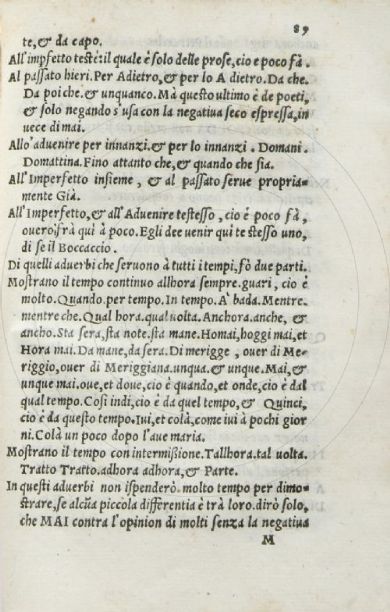 89
te,& da capo.
All'impfetto testè:il quale è solo delle prose, cio e poco fà.
Al passato hieri. Per Adietro,& per lo A dietro. Da che.
Da poi che.& unquanco. Mà questo ultimo è de poeti,
& solo negando s'usa con la negativa seco espressa,in
uece di mai.
Allo'aduenire per innanzi.& per lo innanzi. Domani.
Domattina. Fino attanto che,& quando che sia.
All'Imperfetto insieme, & al passato serue propria-
mente Già.
All'Imperfetto,& all'Aduenire testesso, cio è poco fà,
ouero frà qui à poco. Egli dee uenir qui te stesso uno,
di se il Boccaccio.
Di quelli aduerbi che seruono à tutti i tempi,fò due parti.
Mostrano il tempo continuo allhora sempre.guari, cio è
molto. Quando.per tempo.In tempo. A' bada. Mentre.
mentre che. Qual hora.qual uolta. Anchora.anche, &
ancho. Sta sera,sta note.sta mane. Homai,hoggi mai,et
Hora mai. Da mane,da sera. Di merigge, ouer di Me-
riggio,ouer di Meriggiana.unqua.& unque. Mai,&
unque mai.oue,et doue,cio è quando,et onde,cio è dal
qual tempo. Così indi,cio è da quel tempo, & Quinci,
cio è da questo tempo. Iui,et colà,come iui à pochi gior
ni. Colà un poco dopo l'aue maria.
Mostrano il tempo con intermißione. Tallhora.tal uolta.
Tratto Tratto.adhora adhora,& Parte.
In questi aduerbi non ispenderò molto tempo per dimo-
strare,se alcũa piccola differentia è trà loro.dirò solo,
che MAI contra l'opinion di molti senza la negatiua
M